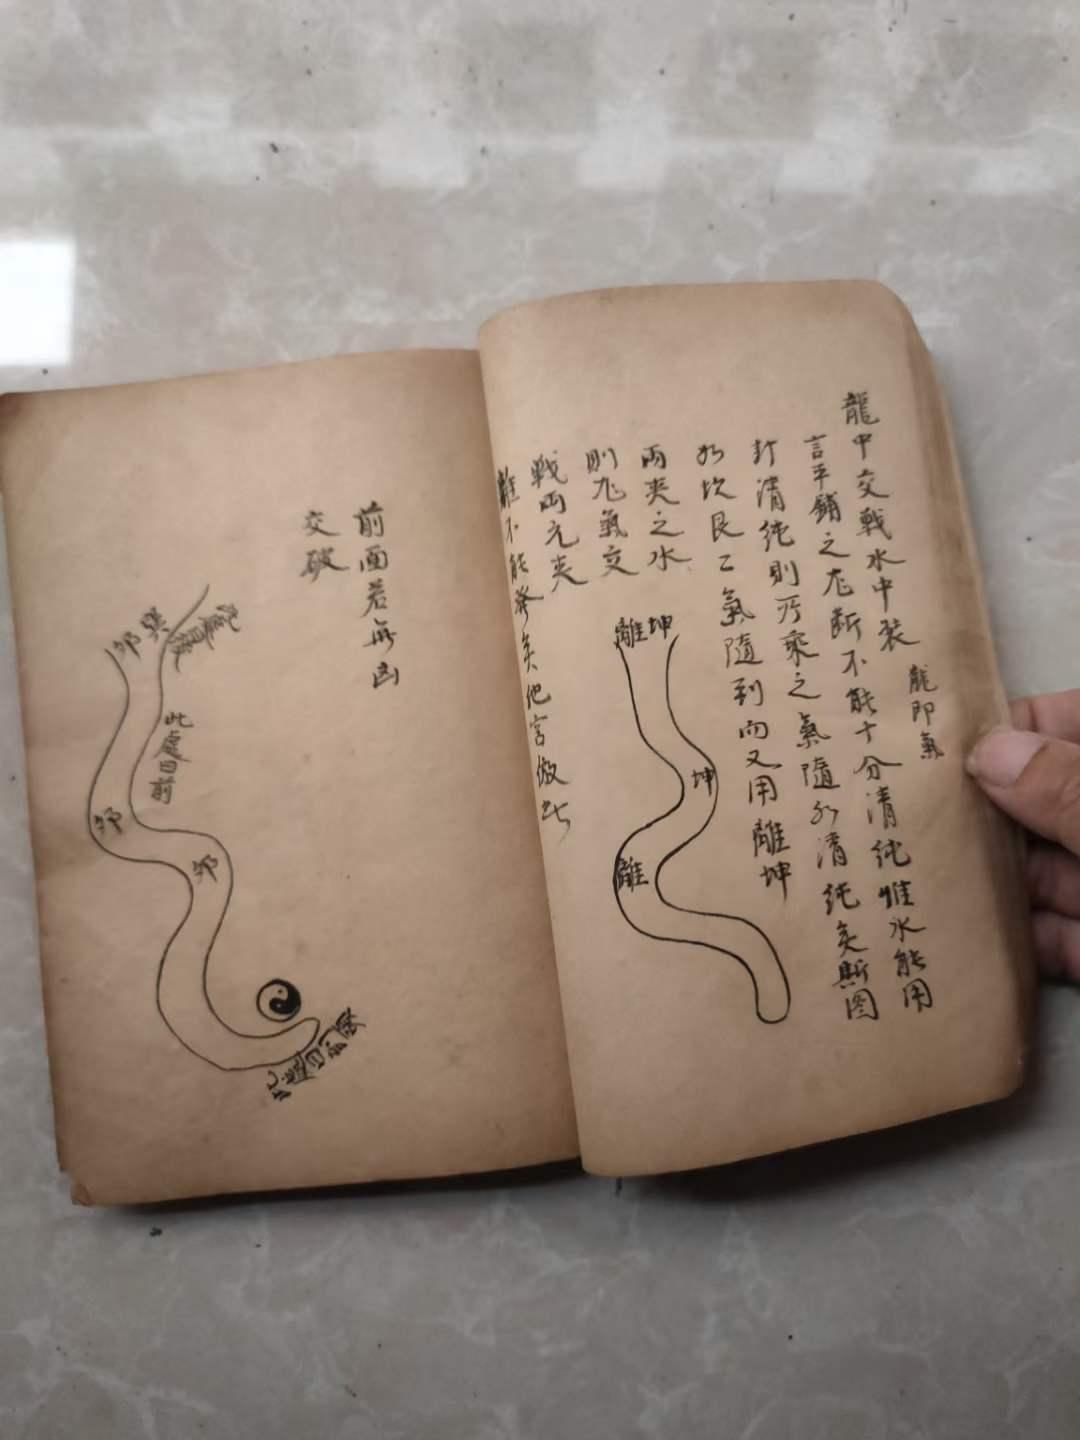 龍中交戰水中裝
龍即氣
言平銷之龙斷不能十分清純惟水能用
打清純則所乘之氣隨水清純矣斯圖
如坎艮二氣隨到而又用離坤
兩夾之水
則九氣交
戰兩元夾
雜不能發矣他言倣此
離坤
坤
離
前面若無凶
交破
此處曰前